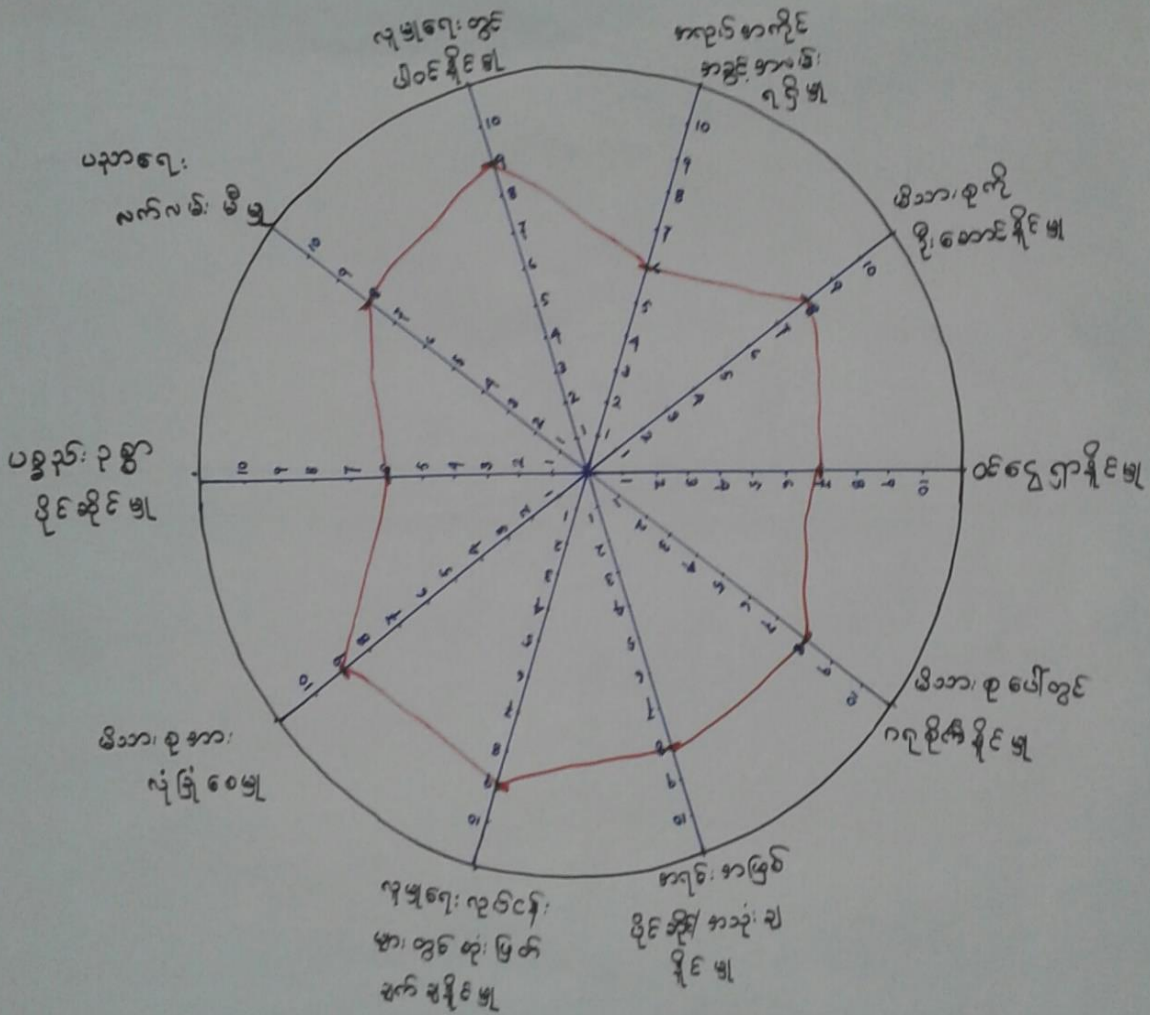 လူမှုရေးတွင်
ပါဝင်နိုင်မှု
အလုပ်အကိုင်
အခွင့်အလမ်း
ရရှိမှု
မိသားစုကို
ဦးဆောင်နိုင်မှု
ဝင်ငွေရှာနိုင်မှု
မိသားစုပေါ်တွင်
ဂရုစိုက်နိုင်မှု
အရင်းအမြစ်
ပိုင်ဆိုင်/အသုံးချ
နိုင်မှု
လူမှုရေးလုပ်ငန်း
များတွင်ဆုံးဖြတ်
ချက်ချနိုင်မှု
မိသားစုအား
လုံခြုံစေမှု
ပစ္စည်းဥစ္စာ
ပိုင်ဆိုင်မှု
ပညာရေး
လက်လမ်းမီမှု
10
9
8
7
6
5
4
3
2
1
10
9
8
7
6
5
4
3
2
1
10
9
8
7
6
5
4
3
2
1
1
2
3
4
5
6
7
8
9
10
1
2
3
4
5
6
7
8
9
10
1
2
3
4
5
6
7
8
9
10
1
2
3
4
5
6
7
8
9
10
1
2
3
4
5
6
7
8
9
10
10
9
8
7
6
5
4
3
2
1
10
9
8
7
6
5
4
3
2
1